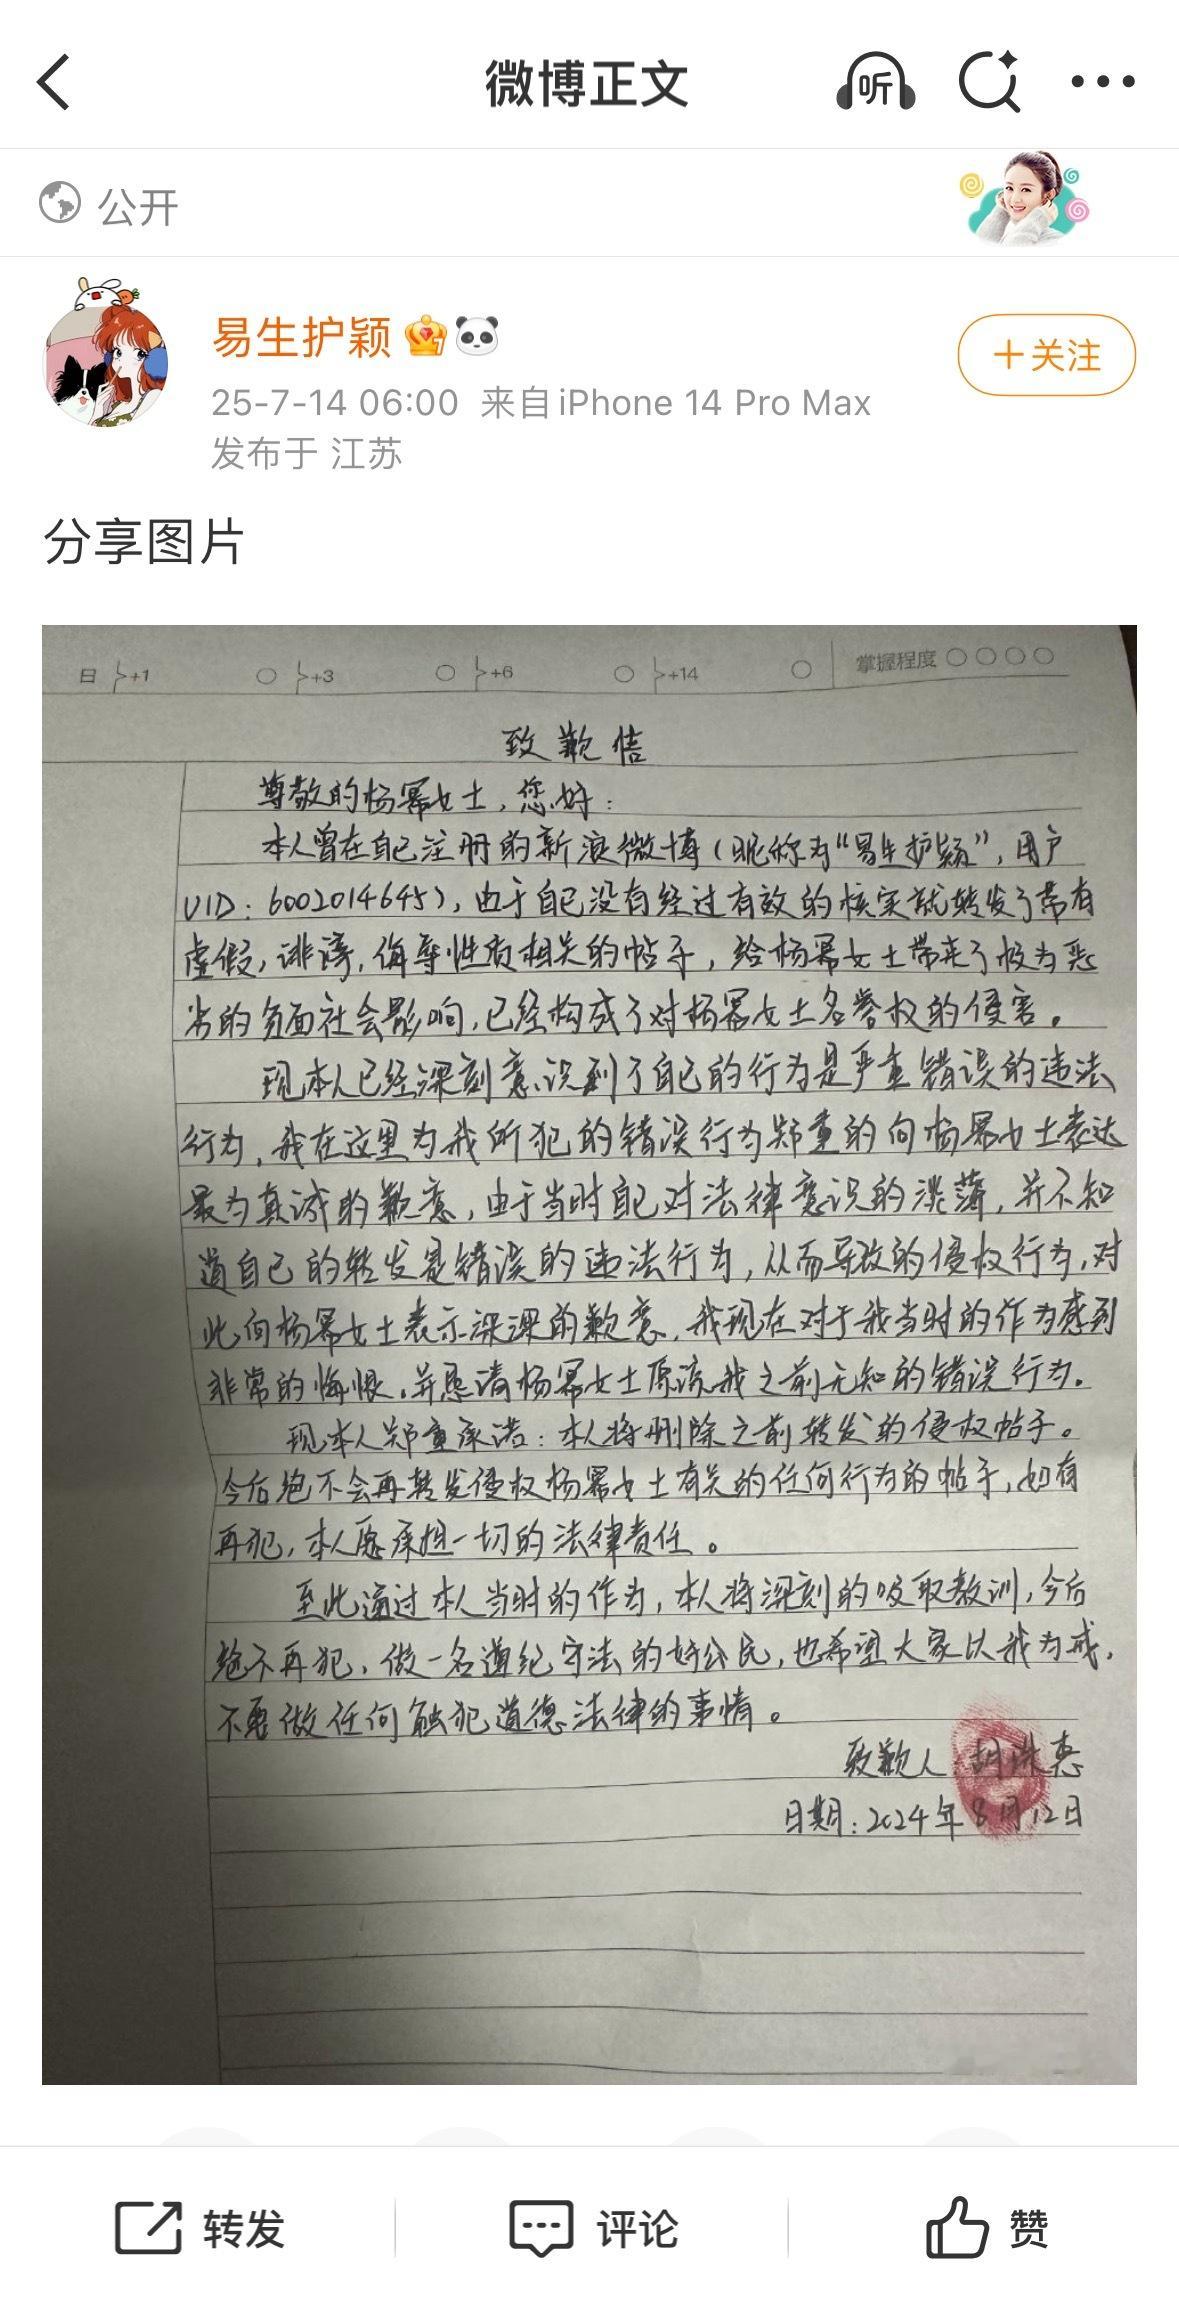 微博正文
听
公开
易生护颖
+关注
25-7-14 06:00 来自 iPhone 14 Pro Max
发布于 江苏
分享图片
日 +1 +3 +6 +14 掌握程度
致歉信
尊敬的杨幂女士，您好：
本人曾在自己注册的新浪微博（昵称为“易生护颖”，用户
UID：6002014645），由于自己没有经过有效的核实就转发了带有
虚假，诽谤，侮辱性质相关的帖子，给杨幂女士带来了极为恶
劣的负面社会影响，已经构成了对杨幂女士名誉权的侵害。
现本人已经深刻意识到了自己的行为是严重错误的违法
行为，我在这里为我所犯的错误行为郑重的向杨幂女士表达
最为真诚的歉意，由于当时自己对法律意识的淡薄，并不知
道自己的转发是错误的违法行为，从而导致的侵权行为，对
此向杨幂女士表示深深的歉意，我现在对于我当时的作为感到
非常的悔恨，并恳请杨幂女士原谅我之前无知的错误行为。
现本人郑重承诺：本人将删除之前转发的侵权帖子。
今后绝不会再转发侵权杨幂女士有关的任何行为的帖子，如有
再犯，本人愿承担一切的法律责任。
至此通过本人当时的作为，本人将深刻的吸取教训，今后
绝不再犯，做一名遵纪守法的好公民，也希望大家以我为戒，
不要做任何触犯道德法律的事情。
致歉人：胡
日期：2024年8月12日
转发
评论
赞